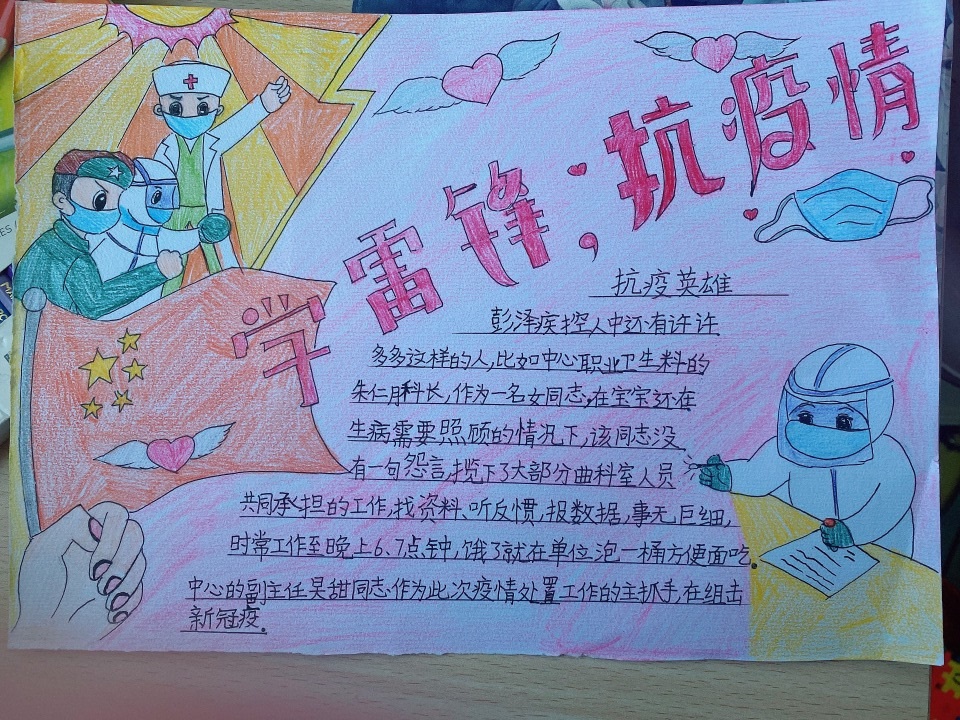 学雷锋;抗疫情
抗疫英雄
彭泽疾控人中还有许许
多多这样的人,比如中心职业卫生料的
朱仁月科长,作为一名女同志,在宝宝还在
生病需要照顾的情况下,该同志没
有一句怨言,揽下了大部分曲科室人员
共同承担的工作,找资料、听反惯,报数据,事无巨细,
时常工作至晚上6、7点钟,饿了就在单位泡一桶方便面吃.
中心的副主任吴甜同志作为此次疫情处置工作的主抓手,在组击
新冠疫.